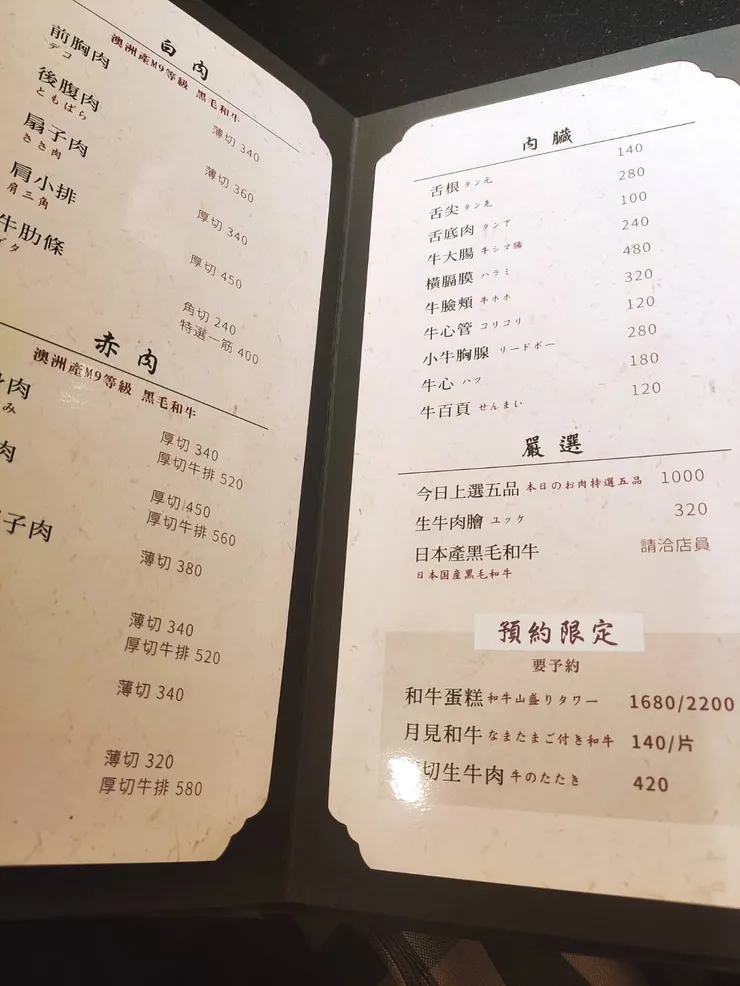 白肉
澳洲產M9等級 黑毛和牛
前胸肉
デコ
薄切 340
後腹肉
ともばら
薄切 360
扇子肉
ささ肉
厚切 340
肩小排
肩三角
厚切 450
牛肋條
ゲタ
角切 240
特選一筋 400
赤肉
澳洲產M9等級 黑毛和牛
肉
み
厚切 340
厚切牛排 520
肉
厚切 450
厚切牛排 560
子肉
薄切 380
薄切 340
厚切牛排 520
薄切 340
薄切 320
厚切牛排 580
內臟
舌根 タン元 140
舌尖 タン先 280
舌底肉 タン下 100
牛大腸 牛シマ腸 240
橫膈膜 ハラミ 480
牛臉頰 牛ホホ 320
牛心管 コリコリ 120
小牛胸腺 リードボー 280
牛心 ハツ 180
牛百頁 せんまい 120
嚴選
今日上選五品 本日のお肉特選五品 1000
生牛肉膾 ユッケ 320
日本產黑毛和牛 請洽店員
日本国産黒毛和牛
預約限定
要予約
和牛蛋糕 和牛山盛りタワー 1680/2200
月見和牛 なまたまご付き和牛 140/片
切生牛肉 牛のたたき 420